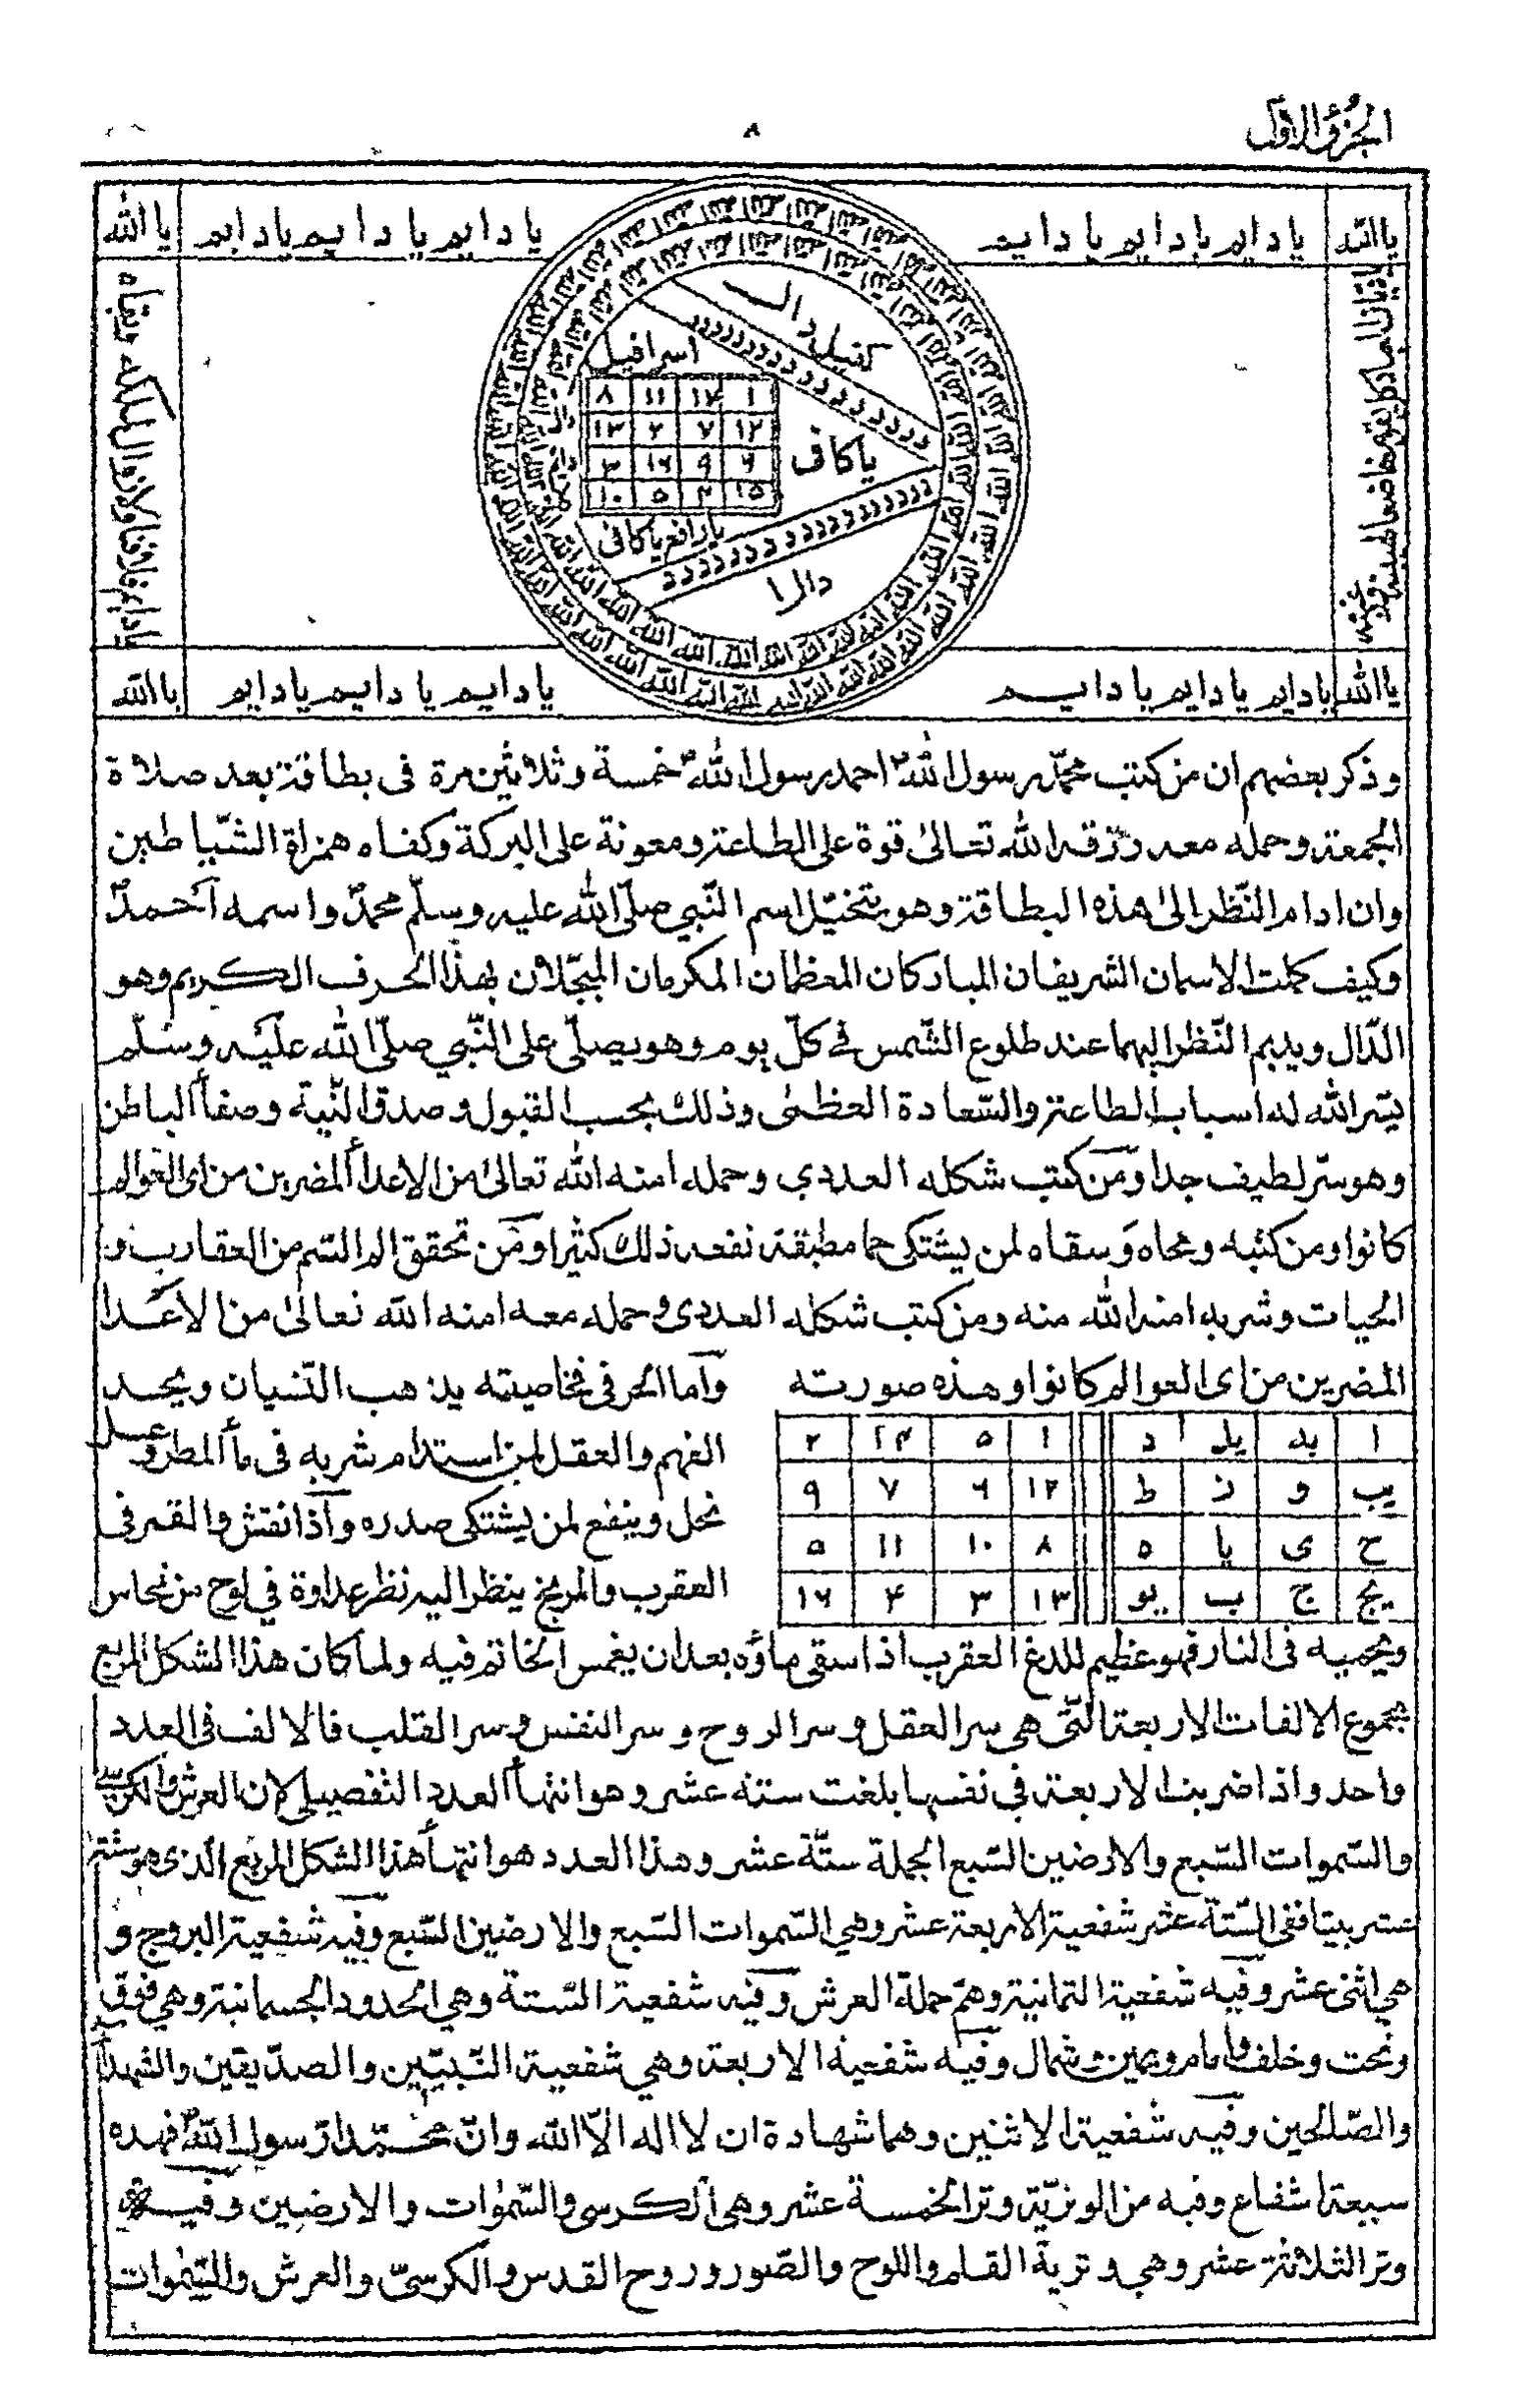 الجزؤ الاول
٨
يا الله
يا دايم يا دايم يا دايم
يا دايم يا دايم يا دايم
يا الله
كفيل دال
د د د د د د د د د د د د د د د د د
اسرافيل
٨ ١١ ١٤ ١
١٣ ٢ ٧ ١٢
٣ ١٦ ٩ ٦
١٠ ٥ ٤ ١٥
يا كافى
يا رافع يا كافى
د د د د د د د د د د د د د د د د د
دال
يا الله
يا دايم يا دايم يا دايم
يا دايم يا دايم يا دايم
يا الله
وذكر بعضهم ان من كتب محمّد رسول الله احمد رسول الله خمسة وثلاثين مرة فى بطاقة بعد صلاة
الجمعة وحمله معه رزقه الله تعالىٰ قوة على الطاعة ومعونة على البركة وكفاه همزاة الشّياطين
وان ادام النّظر الى هذه البطاقة وهو يتخيّل اسم النّبي صلّى الله عليه وسلّم محمّد واسمه احمد
وكيف كملت الاسمان الشريفان المباركان المعظمان المكرمان المبجّلان بهذا الحرف الكريم وهو
الدّال ويديم النّظر اليهما عند طلوع الشّمس في كلّ يوم وهو يصلّى على النّبي صلّى الله عليه وسلّم
يسّر الله له اسباب الطاعة والسّعادة العظمىٰ وذلك بحسب القبول وصدق النّية وصفأ الباطن
وهو سرّ لطيف جدا ومن كتب شكله العددي وحمله امنه الله تعالىٰ من الاعدأ المضرين من اى العوالم
كانوا ومن كتبه ومحاه وسقاه لمن يشتكى حما مطبقة نفعه ذلك كثيرا ومن تحقق الم السّم من العقارب و
الحيات وشربه امنه الله منه ومن كتب شكله العددى وحمله معه امنه الله تعالىٰ من الاعدا
المضرين من اى العوالم كانوا وهذه صورته
ا يه يد د
يب و ز ط
ح ى يا ه
يج ج ب يو
١ ٥ ١٤ ٢
١٢ ٦ ٧ ٩
٨ ١٠ ١١ ٥
١٣ ٣ ٤ ١٦
وأما الحرفى فخاصيته يذهب النّسيان ويحد
الفهم والعقل لمن استدام شربه فى مأ المطر وعسل
نحل وينفع لمن يشتكى صدره وأذا نقش والقمر فى
العقرب والمريخ ينظر اليه نظر عداوة في لوح من نحاس
ويحميه فى النار فهو عظيم للدغ العقرب اذا سقى ماؤه بعد ان يغمس الخاتم فيه ولما كان هذا الشكل المربع
مجموع الالفات الاربعة التّى هى سر العقل وسر الروح وسر النفس وسر القلب فالالف فى العدد
واحد واذا ضربنا الاربعة في نفسها بلغت ستة عشر وهو انتهأ العدد التفصيلى لان العرش والكرسى
والسّموات السّبع والارضين السّبع الجملة ستّة عشر وهذا العدد هو انتهأ هذا الشكل المربع الذى هو ستة
عشر بيتا ففى السّتة عشر شفعية الاربعة عشر وهي السّموات السّبع والارضين السّبع وفيه شفعية البروج و
هي اثنى عشر وفيه شفعية الثمانية وهم حملة العرش وفيه شفعية السّتة وهي الحدود الجسمانية وهي فوق
وتحت وخلف وامام ويمين وشمال وفيه شفعية الاربعة وهي شفعية النّبيّين والصدّيقين والشهدأ
والصّالحين وفيه شفعية الاثنين وهما شهادة ان لا اله الّا الله وانّ محمّدا رّسول الله فهذه
سبعة اشفاع وفيه من الوتريّة وتر الخمسة عشر وهى الكرسى والسّمٰوات والارضين وفيه
وتر الثلاثة عشر وهي وترية القلم واللوح والصّور وروح القدس والكرسىّ والعرش والسّمٰوات